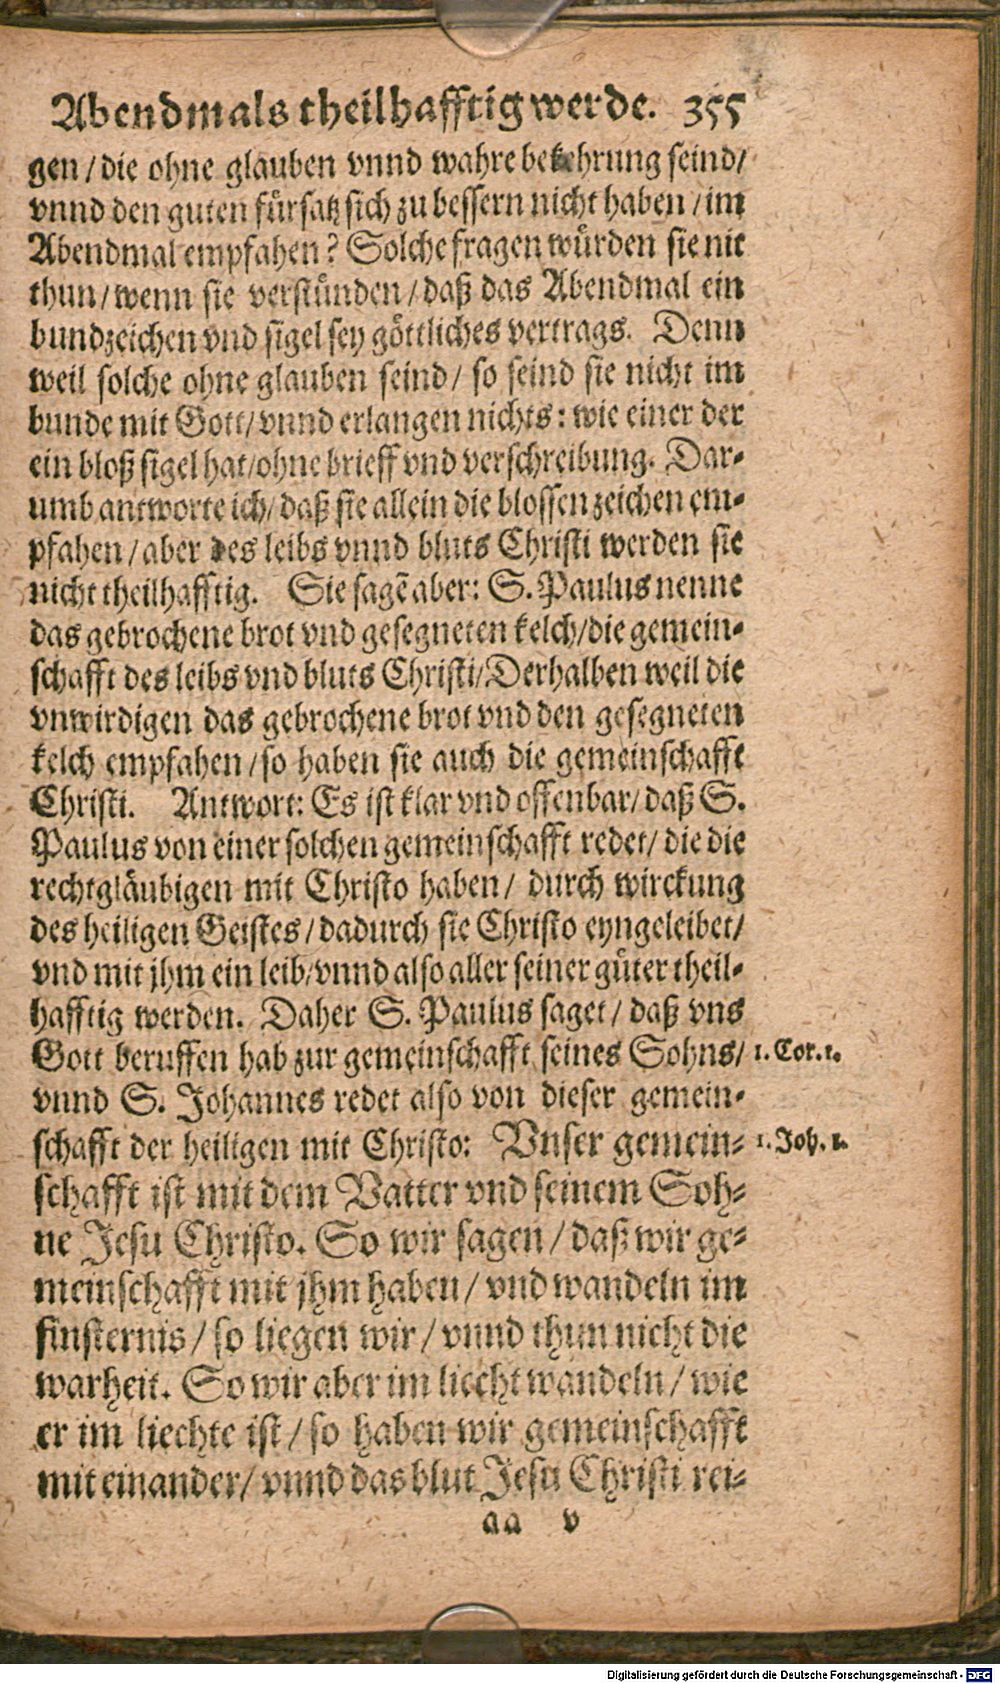 Abendmals theilhafftig werde. 355
gen / die ohne glauben vnnd wahre bekehrung seind/
vnnd den guten fürsatz sich zu bessern nicht haben / im
Abendmal empfahen? Solche fragen würden sie nit
thun / wenn sie verstünden / daß das Abendmal ein
bundzeichen vnd sigel sey göttliches vertrags. Denn
weil solche ohne glauben seind / so seind sie nicht im
bunde mit Gott / vnnd erlangen nichts: wie einer der
ein bloß sigel hat / ohne brieff vnd verschreibung. Dar-
umb antworte ich / daß sie allein die blossen zeichen em-
pfahen / aber des leibs vnnd bluts Christi werden sie
nicht theilhafftig. Sie sagē aber: S. Paulus nenne
das gebrochene brot vnd gesegneten kelch / die gemein-
schafft des leibs vnd bluts Christi / Derhalben weil die
vnwirdigen das gebrochene brot vnd den gesegneten
kelch empfahen / so haben sie auch die gemeinschafft
Christi. Antwort: Es ist klar vnd offenbar / daß S.
Paulus von einer solchen gemeinschafft redet / die die
rechtgläubigen mit Christo haben / durch wirckung
des heiligen Geistes / dadurch sie Christo eyngeleibet/
vnd mit jhm ein leib / vnnd also aller seiner güter theil-
hafftig werden. Daher S. Paulus saget / daß vns
Gott beruffen hab zur gemeinschafft seines Sohns / 1. Cor. 1.
vnnd S. Johannes redet also von dieser gemein-
schafft der heiligen mit Christo: Vnser gemein- 1. Joh. 1.
schafft ist mit dem Vatter vnd seinem Soh-
ne Jesu Christo. So wir sagen / daß wir ge-
meinschafft mit jhm haben / vnd wandeln im
finsternis / so liegen wir / vnnd thun nicht die
warheit. So wir aber im liecht wandeln / wie
er im liechte ist / so haben wir gemeinschafft
mit einander / vnnd das blut Jesu Christi rei-
aa v
Digitalisierung gefördert durch die Deutsche Forschungsgemeinschaft - DFG